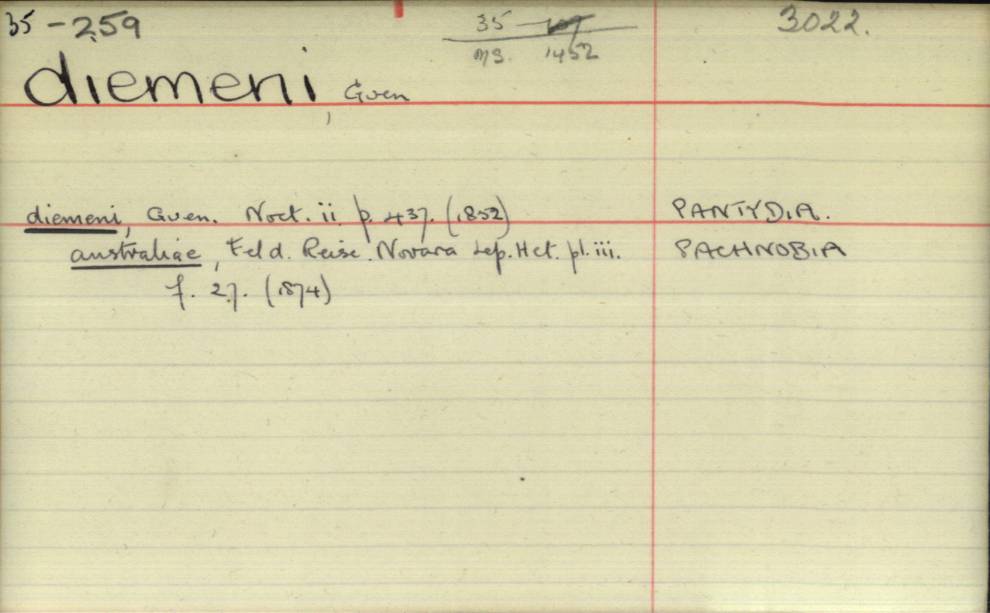 35 - 259
35
MS. 1452
3022.
diemeni, Guen
diemeni, Guen. Noct. ii p. 437. (1852) PANTYDIA.
australiae, Feld. Reise. Novara Lep. Het. pl. iii. PACHNOBIA
f. 27. (1874)